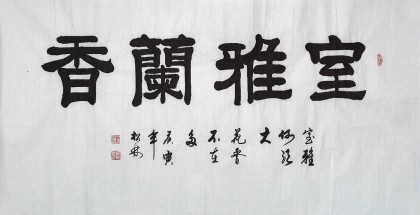 室雅蘭香
室雅
何須
大
花香
不在
多
庚寅
年